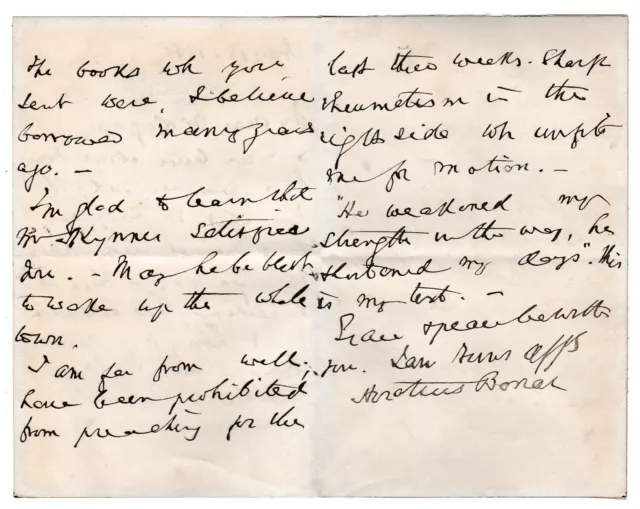 The books wh you
sent were, I believe
borrowed many years
ago. —
I'm glad to learn that
Mr Skynner satisfies
you. — May he be blest
to wake up the whole
town.
I am far from well;
have been prohibited
from preaching for the
last three weeks. Sharp
rheumatism in the
right side wh unfits
me for motion. —
"He weakened my
strength in the way, he
shortened my days". This
is my text. —
Grace & peace be with
you. I am Yours affly
Horatius Bonar